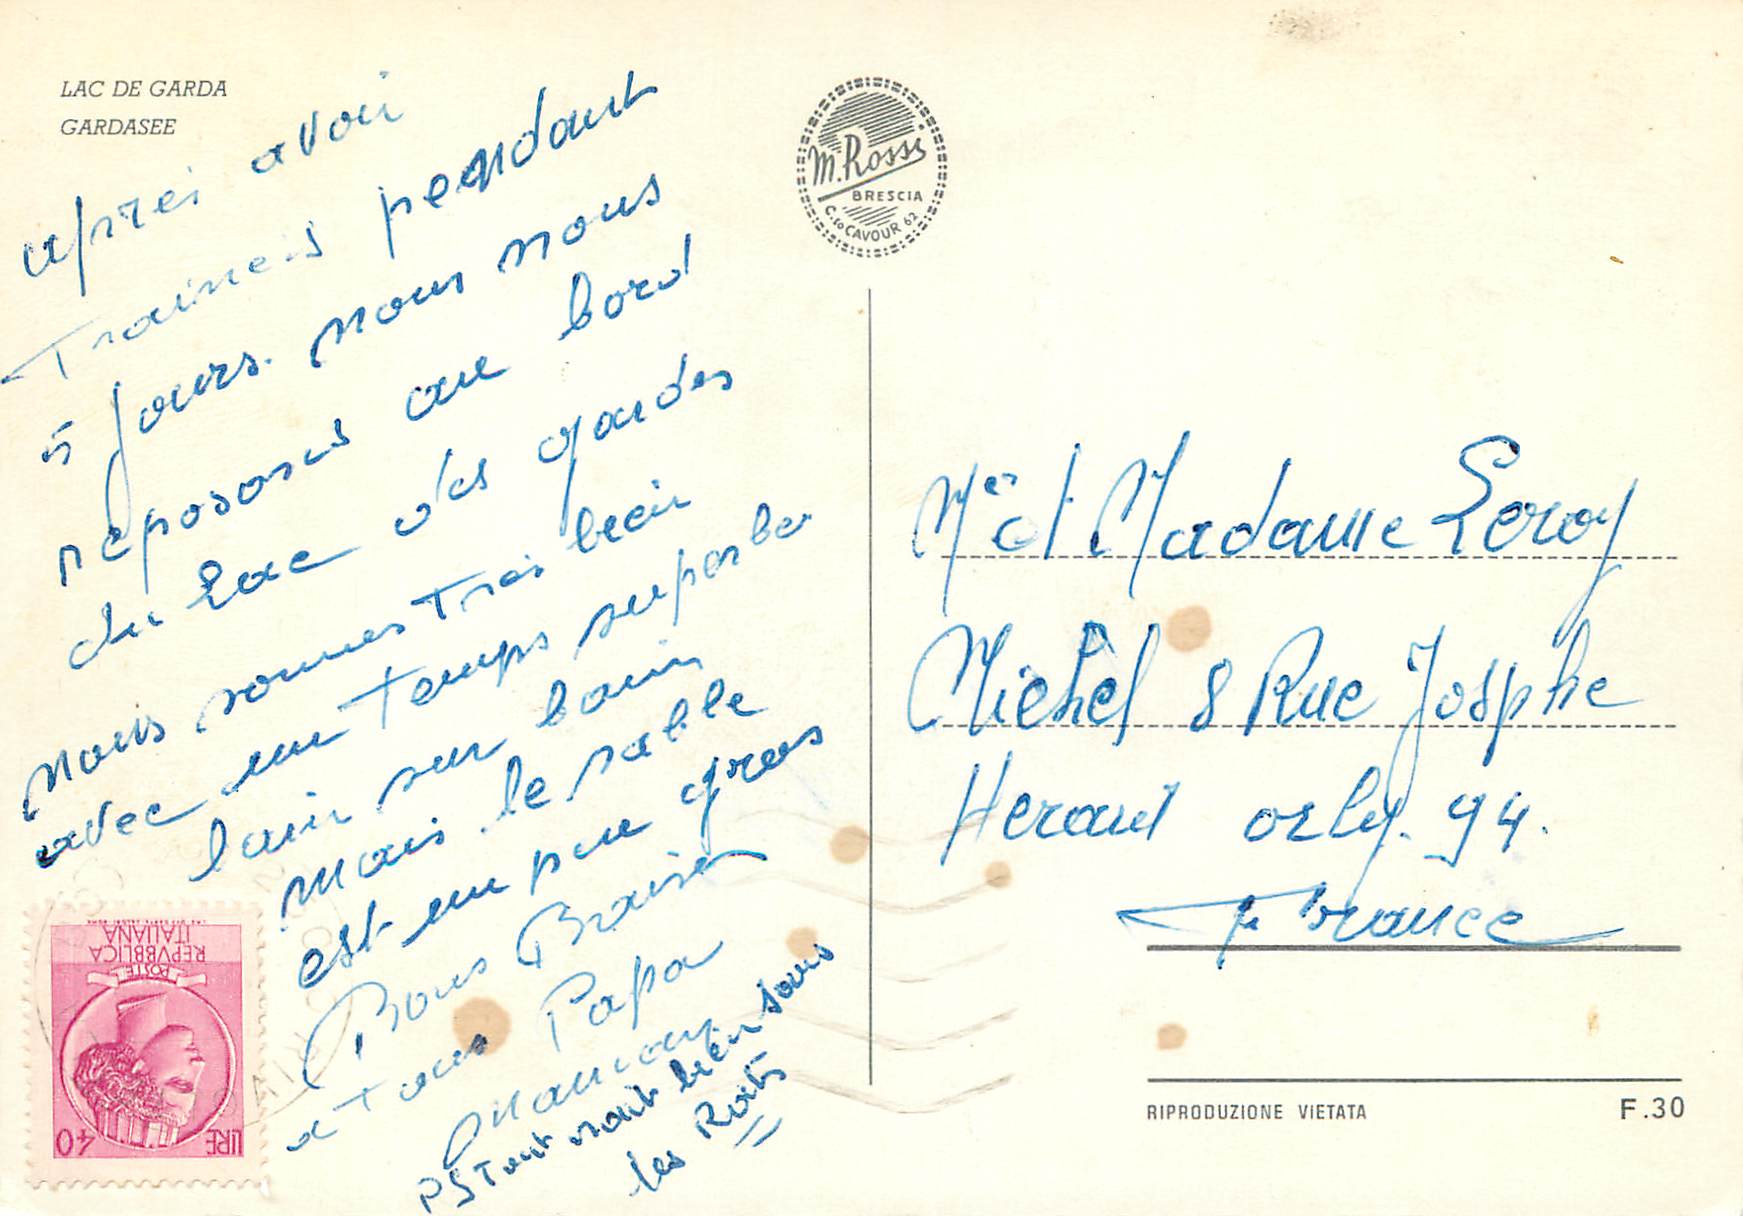 LAC DE GARDA
GARDASEE
après avoir
Traineis pendant
5 jours. nous nous
reposons au bord
du Lac des gardes
nous sommes Très bien
avec un Temps superbe
bain sur bain
mais le sable
est un peu gros
Bons Baiser
a Tous Papa
maman
PS Tout vont bien sous
les Roits
REPVBBLICA
ITALIANA
POSTE
LIRE 40
M. Rossi
BRESCIA
C.so CAVOUR 62
Mr et Madame Leroy
Michel 8 Rue Josphe
Heraut orly. 94.
France
RIPRODUZIONE VIETATA
F.30